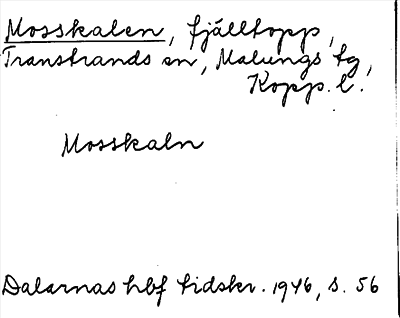 Mosskalen, fjälltopp,
Transtrands sn, Malungs tg,
Kopp. l.
Mosskaln
Dalarnas hbf tidskr. 1946, s. 56